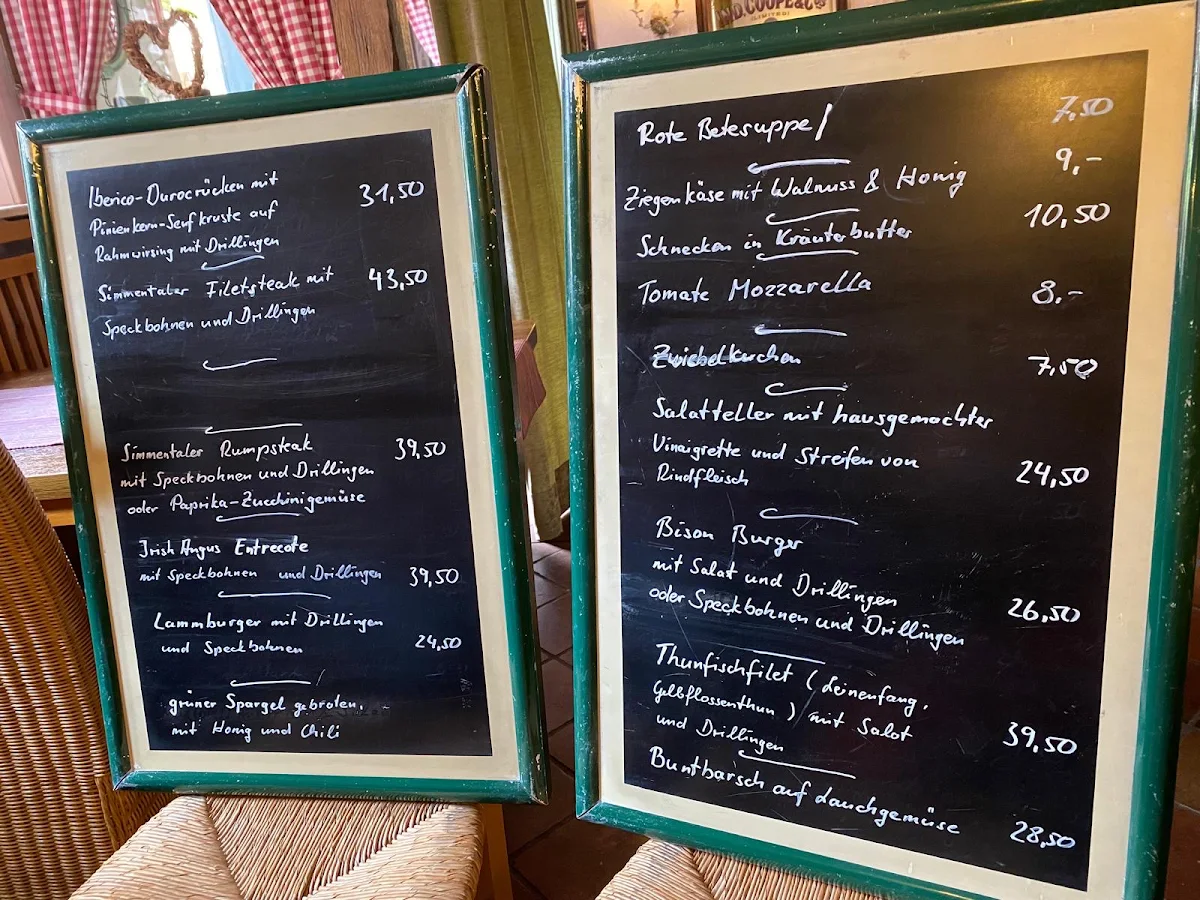 ND. COOPE & Co
(LIMITED)
Iberico-Durocrücken mit
Pinienkern-Senfkruste auf
31,50
Rahmwirsing mit Drillingen
Simmentaler Filetsteak mit
43,50
Speckbohnen und Drillingen
Simmentaler Rumpsteak
39,50
mit Speckbohnen und Drillingen
oder Paprika-Zucchinigemüse
Irish Angus Entrecote
mit Speckbohnen und Drillingen 39,50
Lammburger mit Drillingen
und Speckbohnen 24,50
grüner Spargel gebraten,
mit Honig und Chili
Rote Betesuppe/ 7,50
Ziegenkäse mit Walnuss & Honig 9,-
Schnecken in Kräuterbutter 10,50
Tomate Mozzarella 8.-
Zwiebelkuchen 7,50
Salatteller mit hausgemachter
Vinaigrette und Streifen von
Rindfleisch 24,50
Bison Burger
mit Salat und Drillingen
oder Speckbohnen und Drillingen 26,50
Thunfischfilet (Leinenfang,
Gelbflossenthun) mit Salat
und Drillingen 39,50
Buntbarsch auf Lauchgemüse 28,50